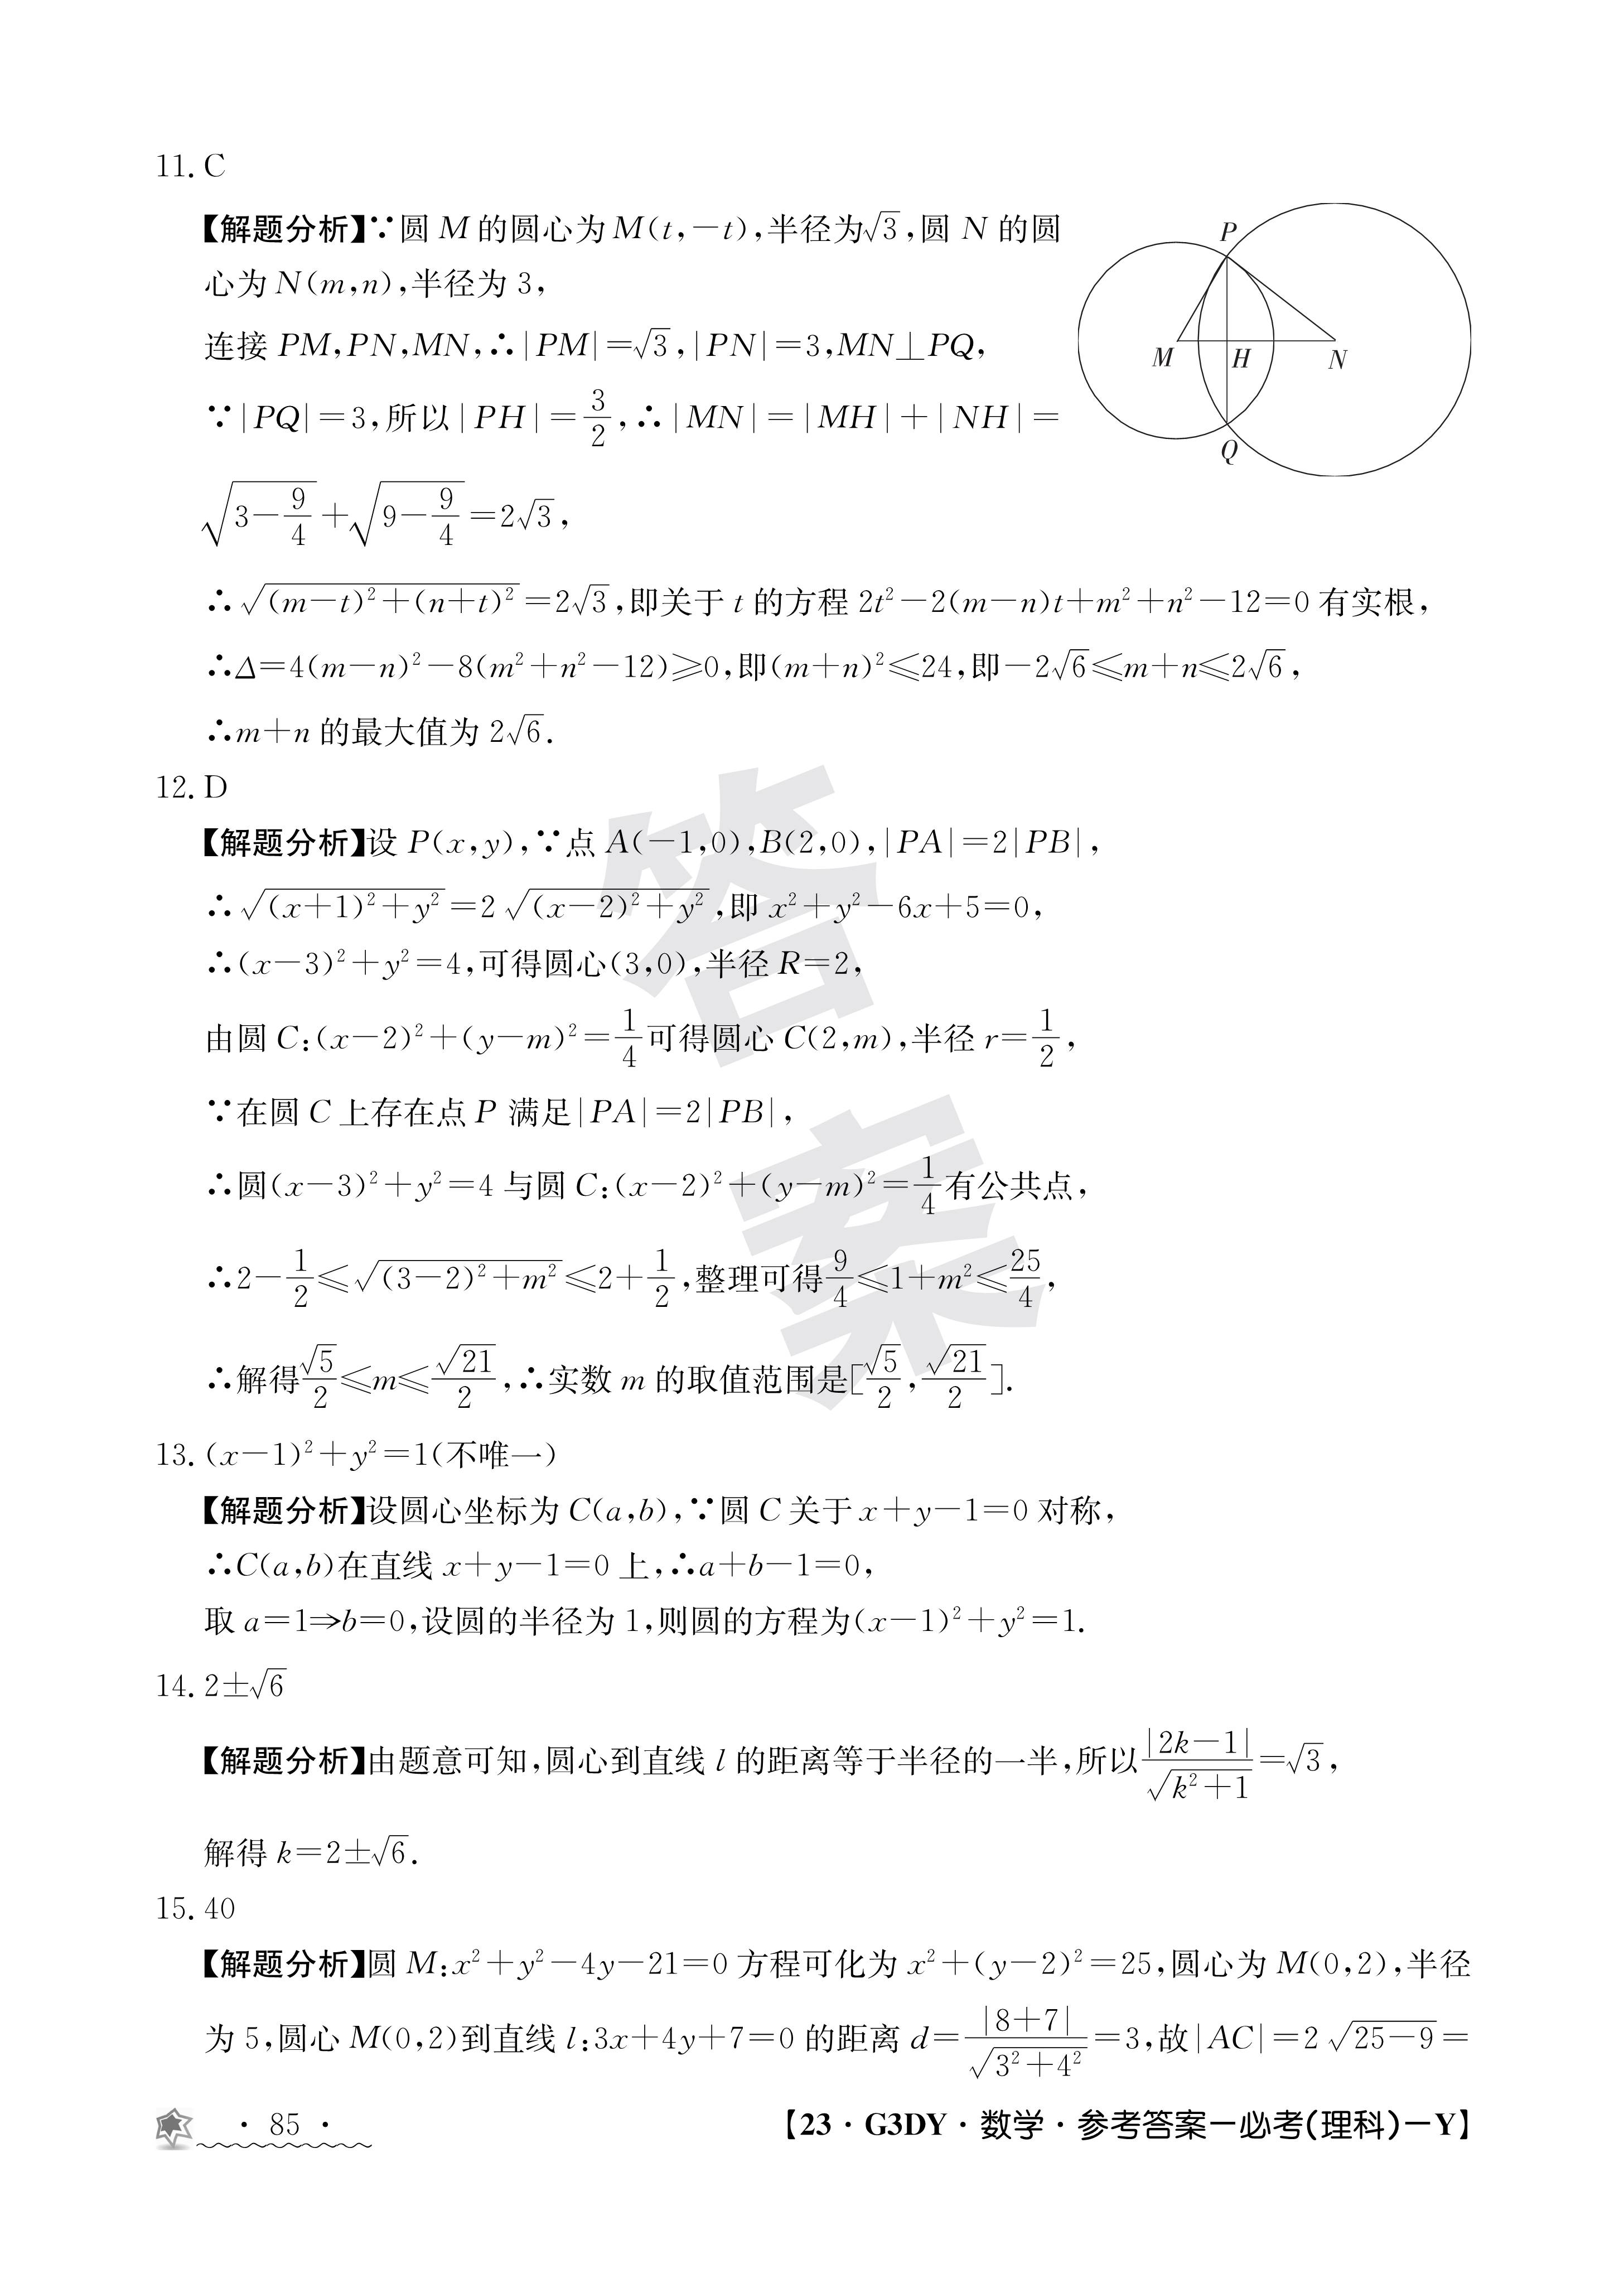 11. C
【解题分析】∵圆 M 的圆心为 M(t,－t),半径为√3,圆 N 的圆
心为 N(m,n),半径为 3,
连接 PM,PN,MN,∴|PM|=√3,|PN|=3,MN⊥PQ,
∵|PQ|=3,所以|PH|=3/2,∴|MN|=|MH|+|NH|=
√(3－9/4)+√(9－9/4)=2√3,
P
M
H
N
Q
∴√((m－t)²+(n+t)²)=2√3,即关于 t 的方程 2t²－2(m－n)t+m²+n²－12=0 有实根,
∴Δ=4(m－n)²－8(m²+n²－12)≥0,即(m+n)²≤24,即－2√6≤m+n≤2√6,
∴m+n 的最大值为 2√6.
12. D
【解题分析】设 P(x,y),∵点 A(－1,0),B(2,0),|PA|=2|PB|,
∴√((x+1)²+y²)=2√((x－2)²+y²),即 x²+y²－6x+5=0,
∴(x－3)²+y²=4,可得圆心(3,0),半径 R=2,
由圆 C:(x－2)²+(y－m)²=1/4可得圆心 C(2,m),半径 r=1/2,
∵在圆 C 上存在点 P 满足|PA|=2|PB|,
∴圆(x－3)²+y²=4 与圆 C:(x－2)²+(y－m)²=1/4有公共点,
∴2－1/2≤√((3－2)²+m²)≤2+1/2,整理可得9/4≤1+m²≤25/4,
∴解得√5/2≤m≤√21/2,∴实数 m 的取值范围是[√5/2,√21/2].
13. (x－1)²+y²=1(不唯一)
【解题分析】设圆心坐标为 C(a,b),∵圆 C 关于 x+y－1=0 对称,
∴C(a,b)在直线 x+y－1=0 上,∴a+b－1=0,
取 a=1⇒b=0,设圆的半径为 1,则圆的方程为(x－1)²+y²=1.
14. 2±√6
【解题分析】由题意可知,圆心到直线 l 的距离等于半径的一半,所以|2k－1|/√(k²+1)=√3,
解得 k=2±√6.
15. 40
【解题分析】圆 M:x²+y²－4y－21=0 方程可化为 x²+(y－2)²=25,圆心为 M(0,2),半径
为 5,圆心 M(0,2)到直线 l:3x+4y+7=0 的距离 d=|8+7|/√(3²+4²)=3,故|AC|=2√(25－9)=
答案
· 85 ·
【23·G3DY·数学·参考答案－必考(理科)－Y】